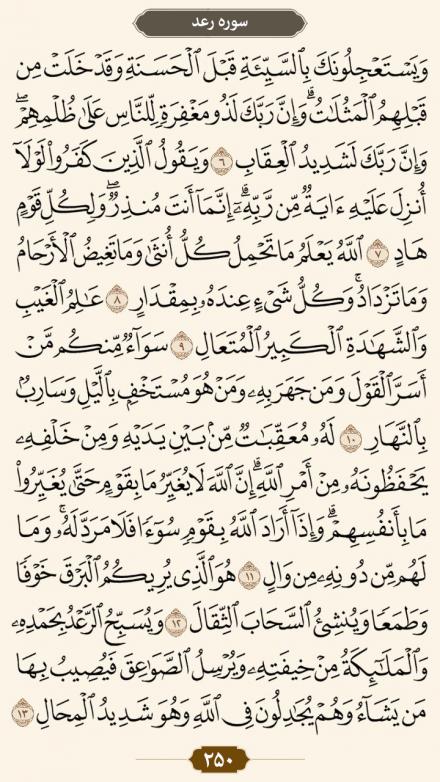 سوره رعد
وَيَسْتَعْجِلُونَكَ بِٱلسَّيِّئَةِ قَبْلَ ٱلْحَسَنَةِ وَقَدْ خَلَتْ مِن
قَبْلِهِمُ ٱلْمَثُلَٰتُ ۗ وَإِنَّ رَبَّكَ لَذُو مَغْفِرَةٍ لِّلنَّاسِ عَلَىٰ ظُلْمِهِمْ ۖ
وَإِنَّ رَبَّكَ لَشَدِيدُ ٱلْعِقَابِ ۝٦ وَيَقُولُ ٱلَّذِينَ كَفَرُوا۟ لَوْلَآ
أُنزِلَ عَلَيْهِ ءَايَةٌ مِّن رَّبِّهِۦٓ ۗ إِنَّمَآ أَنتَ مُنذِرٌ ۖ وَلِكُلِّ قَوْمٍ
هَادٍ ۝٧ ٱللَّهُ يَعْلَمُ مَا تَحْمِلُ كُلُّ أُنثَىٰ وَمَا تَغِيضُ ٱلْأَرْحَامُ
وَمَا تَزْدَادُ ۖ وَكُلُّ شَىْءٍ عِندَهُۥ بِمِقْدَارٍ ۝٨ عَٰلِمُ ٱلْغَيْبِ
وَٱلشَّهَٰدَةِ ٱلْكَبِيرُ ٱلْمُتَعَالِ ۝٩ سَوَآءٌ مِّنكُم مَّنْ
أَسَرَّ ٱلْقَوْلَ وَمَن جَهَرَ بِهِۦ وَمَنْ هُوَ مُسْتَخْفٍۭ بِٱلَّيْلِ وَسَارِبٌۢ
بِٱلنَّهَارِ ۝١٠ لَهُۥ مُعَقِّبَٰتٌ مِّنۢ بَيْنِ يَدَيْهِ وَمِنْ خَلْفِهِۦ
يَحْفَظُونَهُۥ مِنْ أَمْرِ ٱللَّهِ ۗ إِنَّ ٱللَّهَ لَا يُغَيِّرُ مَا بِقَوْمٍ حَتَّىٰ يُغَيِّرُوا۟
مَا بِأَنفُسِهِمْ ۗ وَإِذَآ أَرَادَ ٱللَّهُ بِقَوْمٍ سُوٓءًا فَلَا مَرَدَّ لَهُۥ ۚ وَمَا
لَهُم مِّن دُونِهِۦ مِن وَالٍ ۝١١ هُوَ ٱلَّذِى يُرِيكُمُ ٱلْبَرْقَ خَوْفًا
وَطَمَعًا وَيُنشِئُ ٱلسَّحَابَ ٱلثِّقَالَ ۝١٢ وَيُسَبِّحُ ٱلرَّعْدُ بِحَمْدِهِۦ
وَٱلْمَلَٰٓئِكَةُ مِنْ خِيفَتِهِۦ وَيُرْسِلُ ٱلصَّوَٰعِقَ فَيُصِيبُ بِهَا
مَن يَشَآءُ وَهُمْ يُجَٰدِلُونَ فِى ٱللَّهِ وَهُوَ شَدِيدُ ٱلْمِحَالِ ۝١٣
۲۵۰